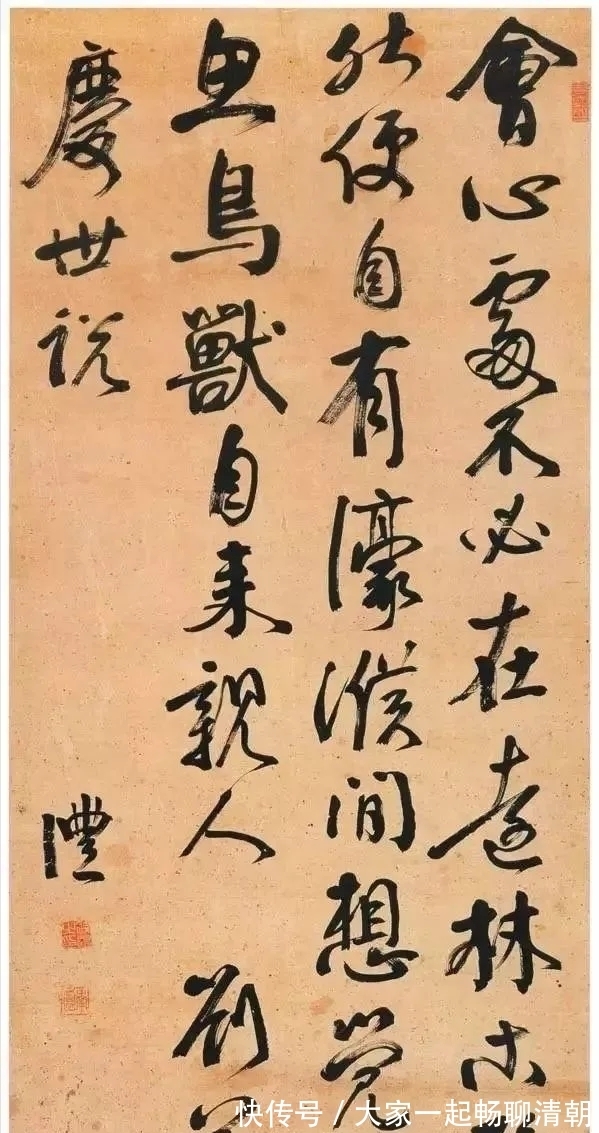 會心處不必在遠林木
然便自有濠濮間想覺
魚鳥獸自來親人 劉
慶世說
澧
快传号 / 大家一起畅聊清朝